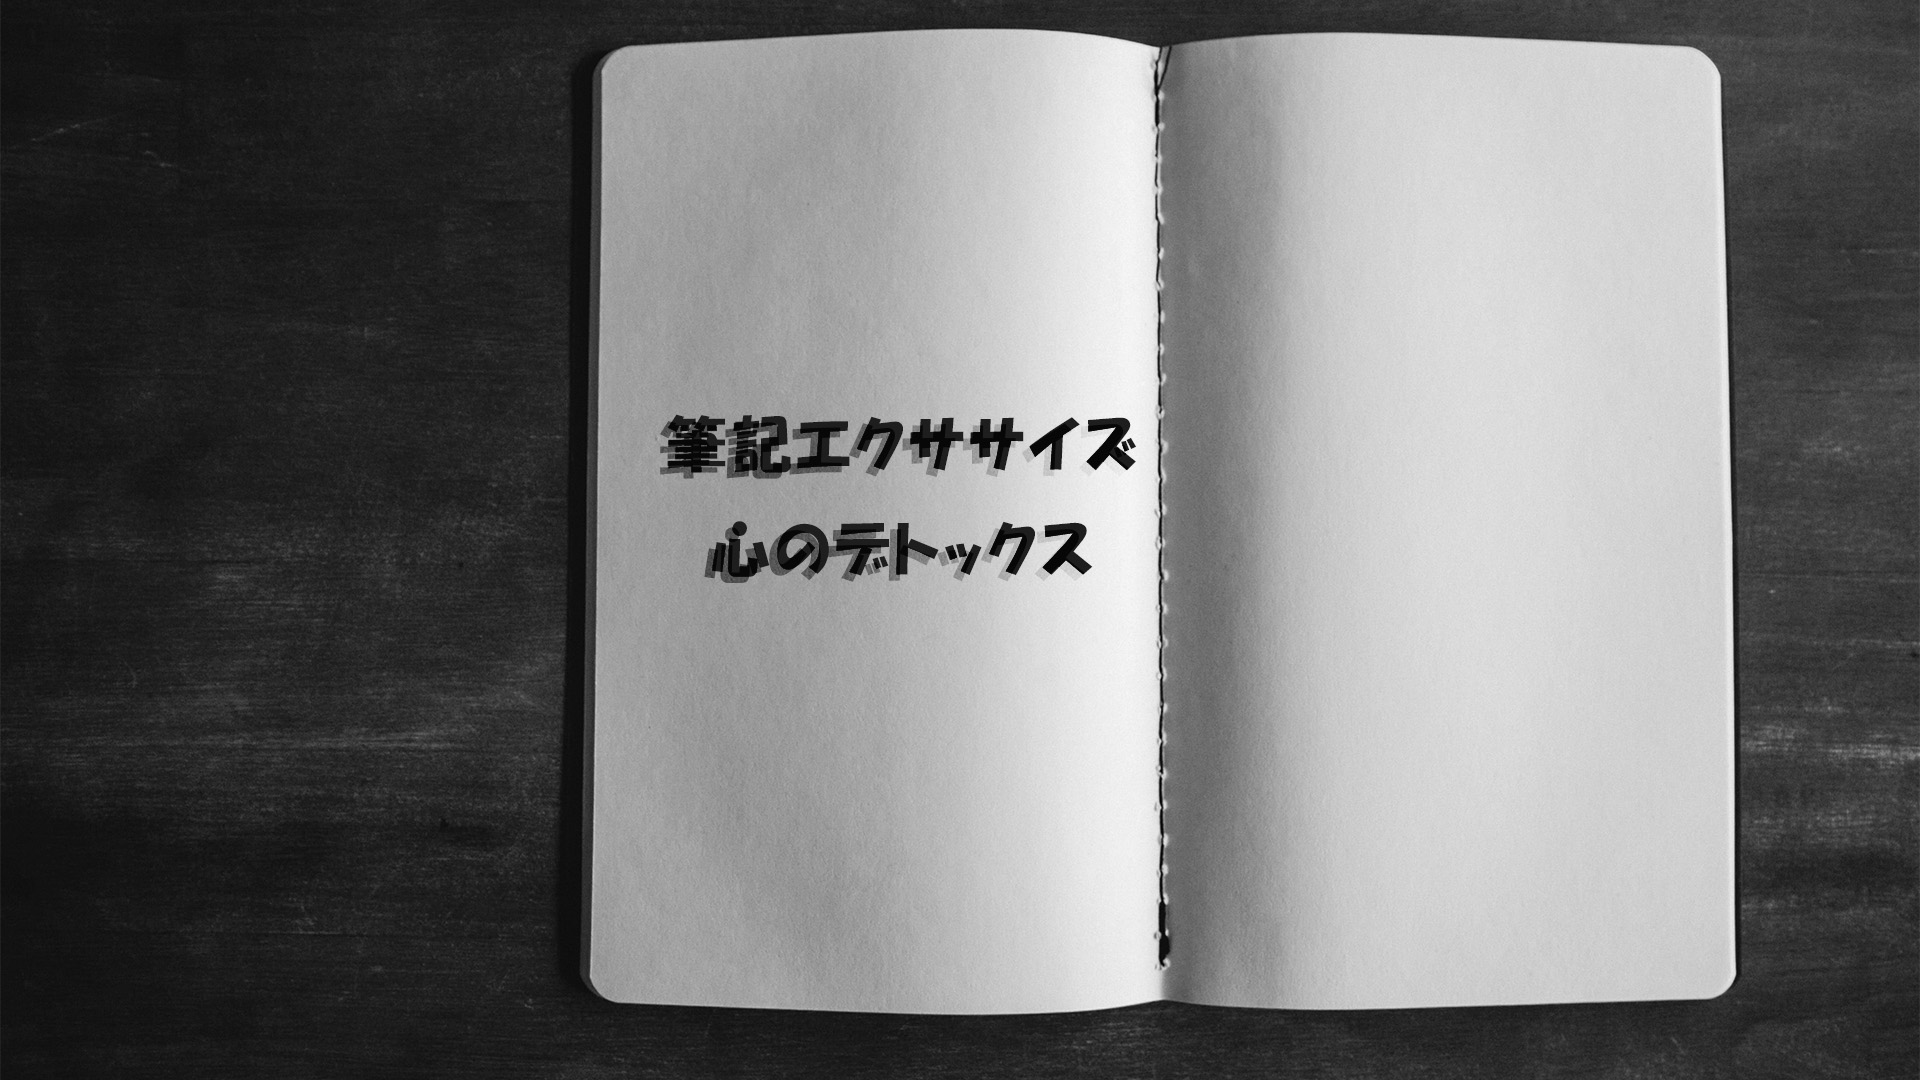 筆記エクササイズ
心のデトックス